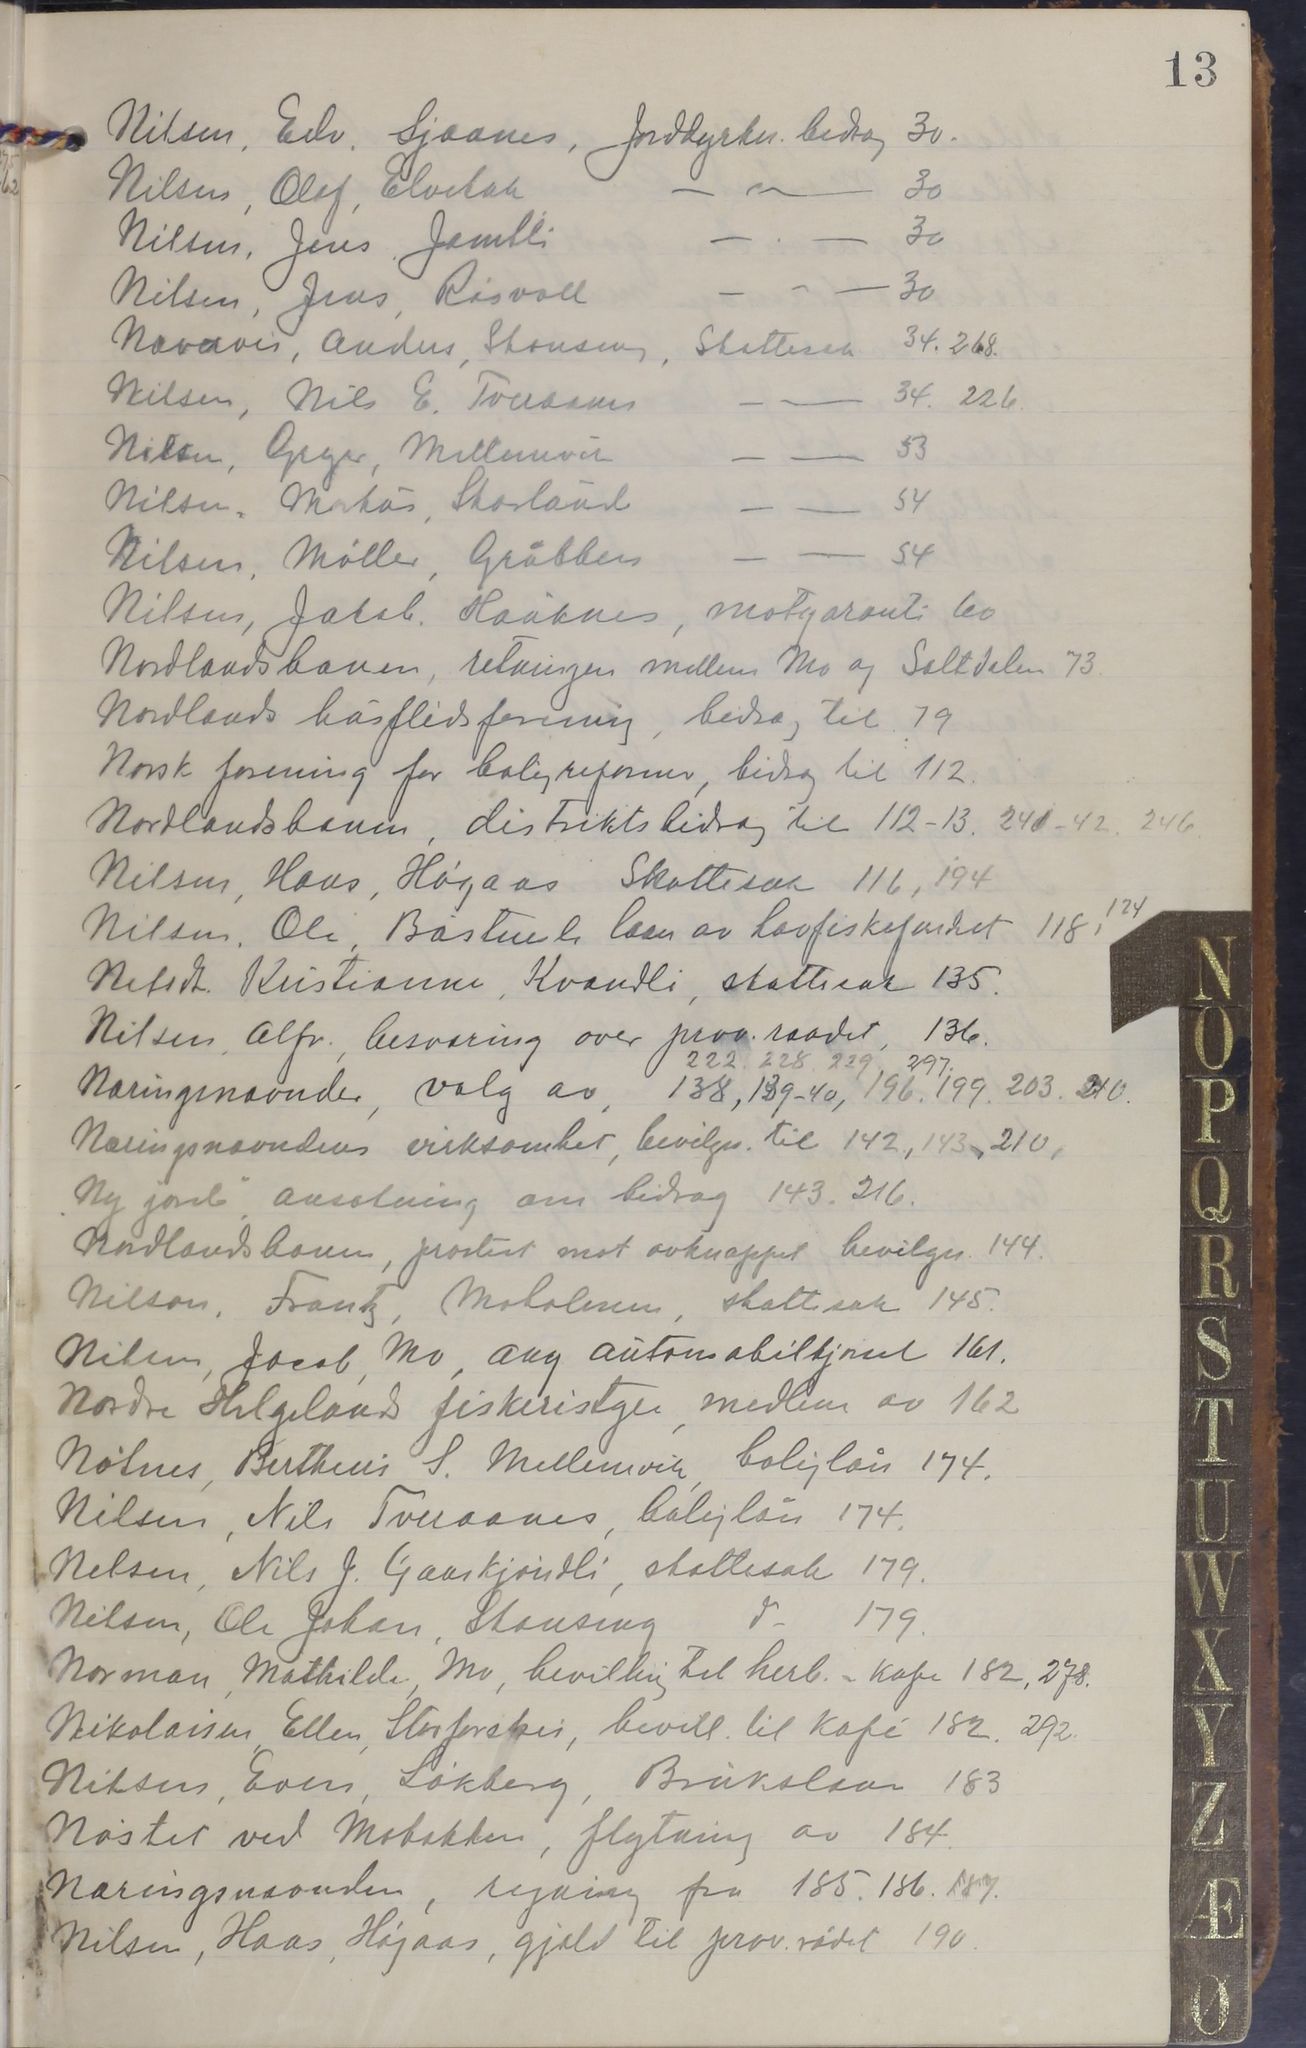 13
Nilsen, Edv. Sjaanes, Jorddyrkn. bidrag 30.
Nilsen, Olaf, Elvebak — " — 30
Nilsen, Jens Jamtli — " — 30
Nilsen, Jens, Røsvoll — " — 30
Nævernes, Anders, Skonseng, Skattesak 34. 268.
Nilsen, Nils E. Tveraanes — — 34. 226.
Nilsen, Mellemvik — — 53
Nilsen, Markus, Storland — — 54
Nilsen, Møller, Grubben — — 54
Nilsen, Jakob. Hauknes, motgaranti 60
Nordlandsbanen, retningen mellem Mo og Saltdalen 73.
Nordlands husflidsforening, bidrag til 79
Norsk forening for boligreformer, bidrag til 112.
Nordlandsbanen, distriktsbidrag til 112-13. 240-42. 246.
Nilsen, Hans, Høgaas Skattesak 116, 194
Nilsen, Ole, Båstnes laan av havfiskefondet 118, 124
Nefedt. Kristianne, Kvandli, skattesak 135.
Nilsen, Alfr., besværing over prov. raadet, 136.
222. 228. 229, 297.
Næringsnævnder, valg av, 138, 139-40, 196. 199. 203. 210.
Næringsnævndens virksomhet, bevilgn. til 142, 143, 210,
"Ny jord" ansøkning om bidrag 143. 216.
Nordlandsbanen, protest mot avknappet bevilgn. 144.
Nilson, Frantz, Moholmen, skattesak 145.
Nilsen, Jacob, Mo, ang automobilkjørsel 161.
Nordre Helgelands fiskeristyre, medlem av 162
Nøtnes, Bertheus S. Mellemvik, boliglån 174.
Nilsen, Nils Tveraanes, boliglån 174.
Nilsen, Nils J. Gaaskjøndli, skattesak 179.
Nilsen, Ole Johan, Skonseng d- 179.
Norman, Mathilde, Mo, bevilling til herb. - kafe 182, 278.
Nikolaisen, Ellen, Storforshei, bevill. til kafé 182. 292.
Nilsen, Even, Søkberg, Brukslaan 183
Nøstet ved Mobakken, flytning av 184
Næringsnævnden, regning fra 185. 186. 187.
Nilsen, Hans, Høgaas, gjæld til prov. rådet 190.
N
O
P
Q
R
S
T
U
W
X
Y
Z
Æ
Ø